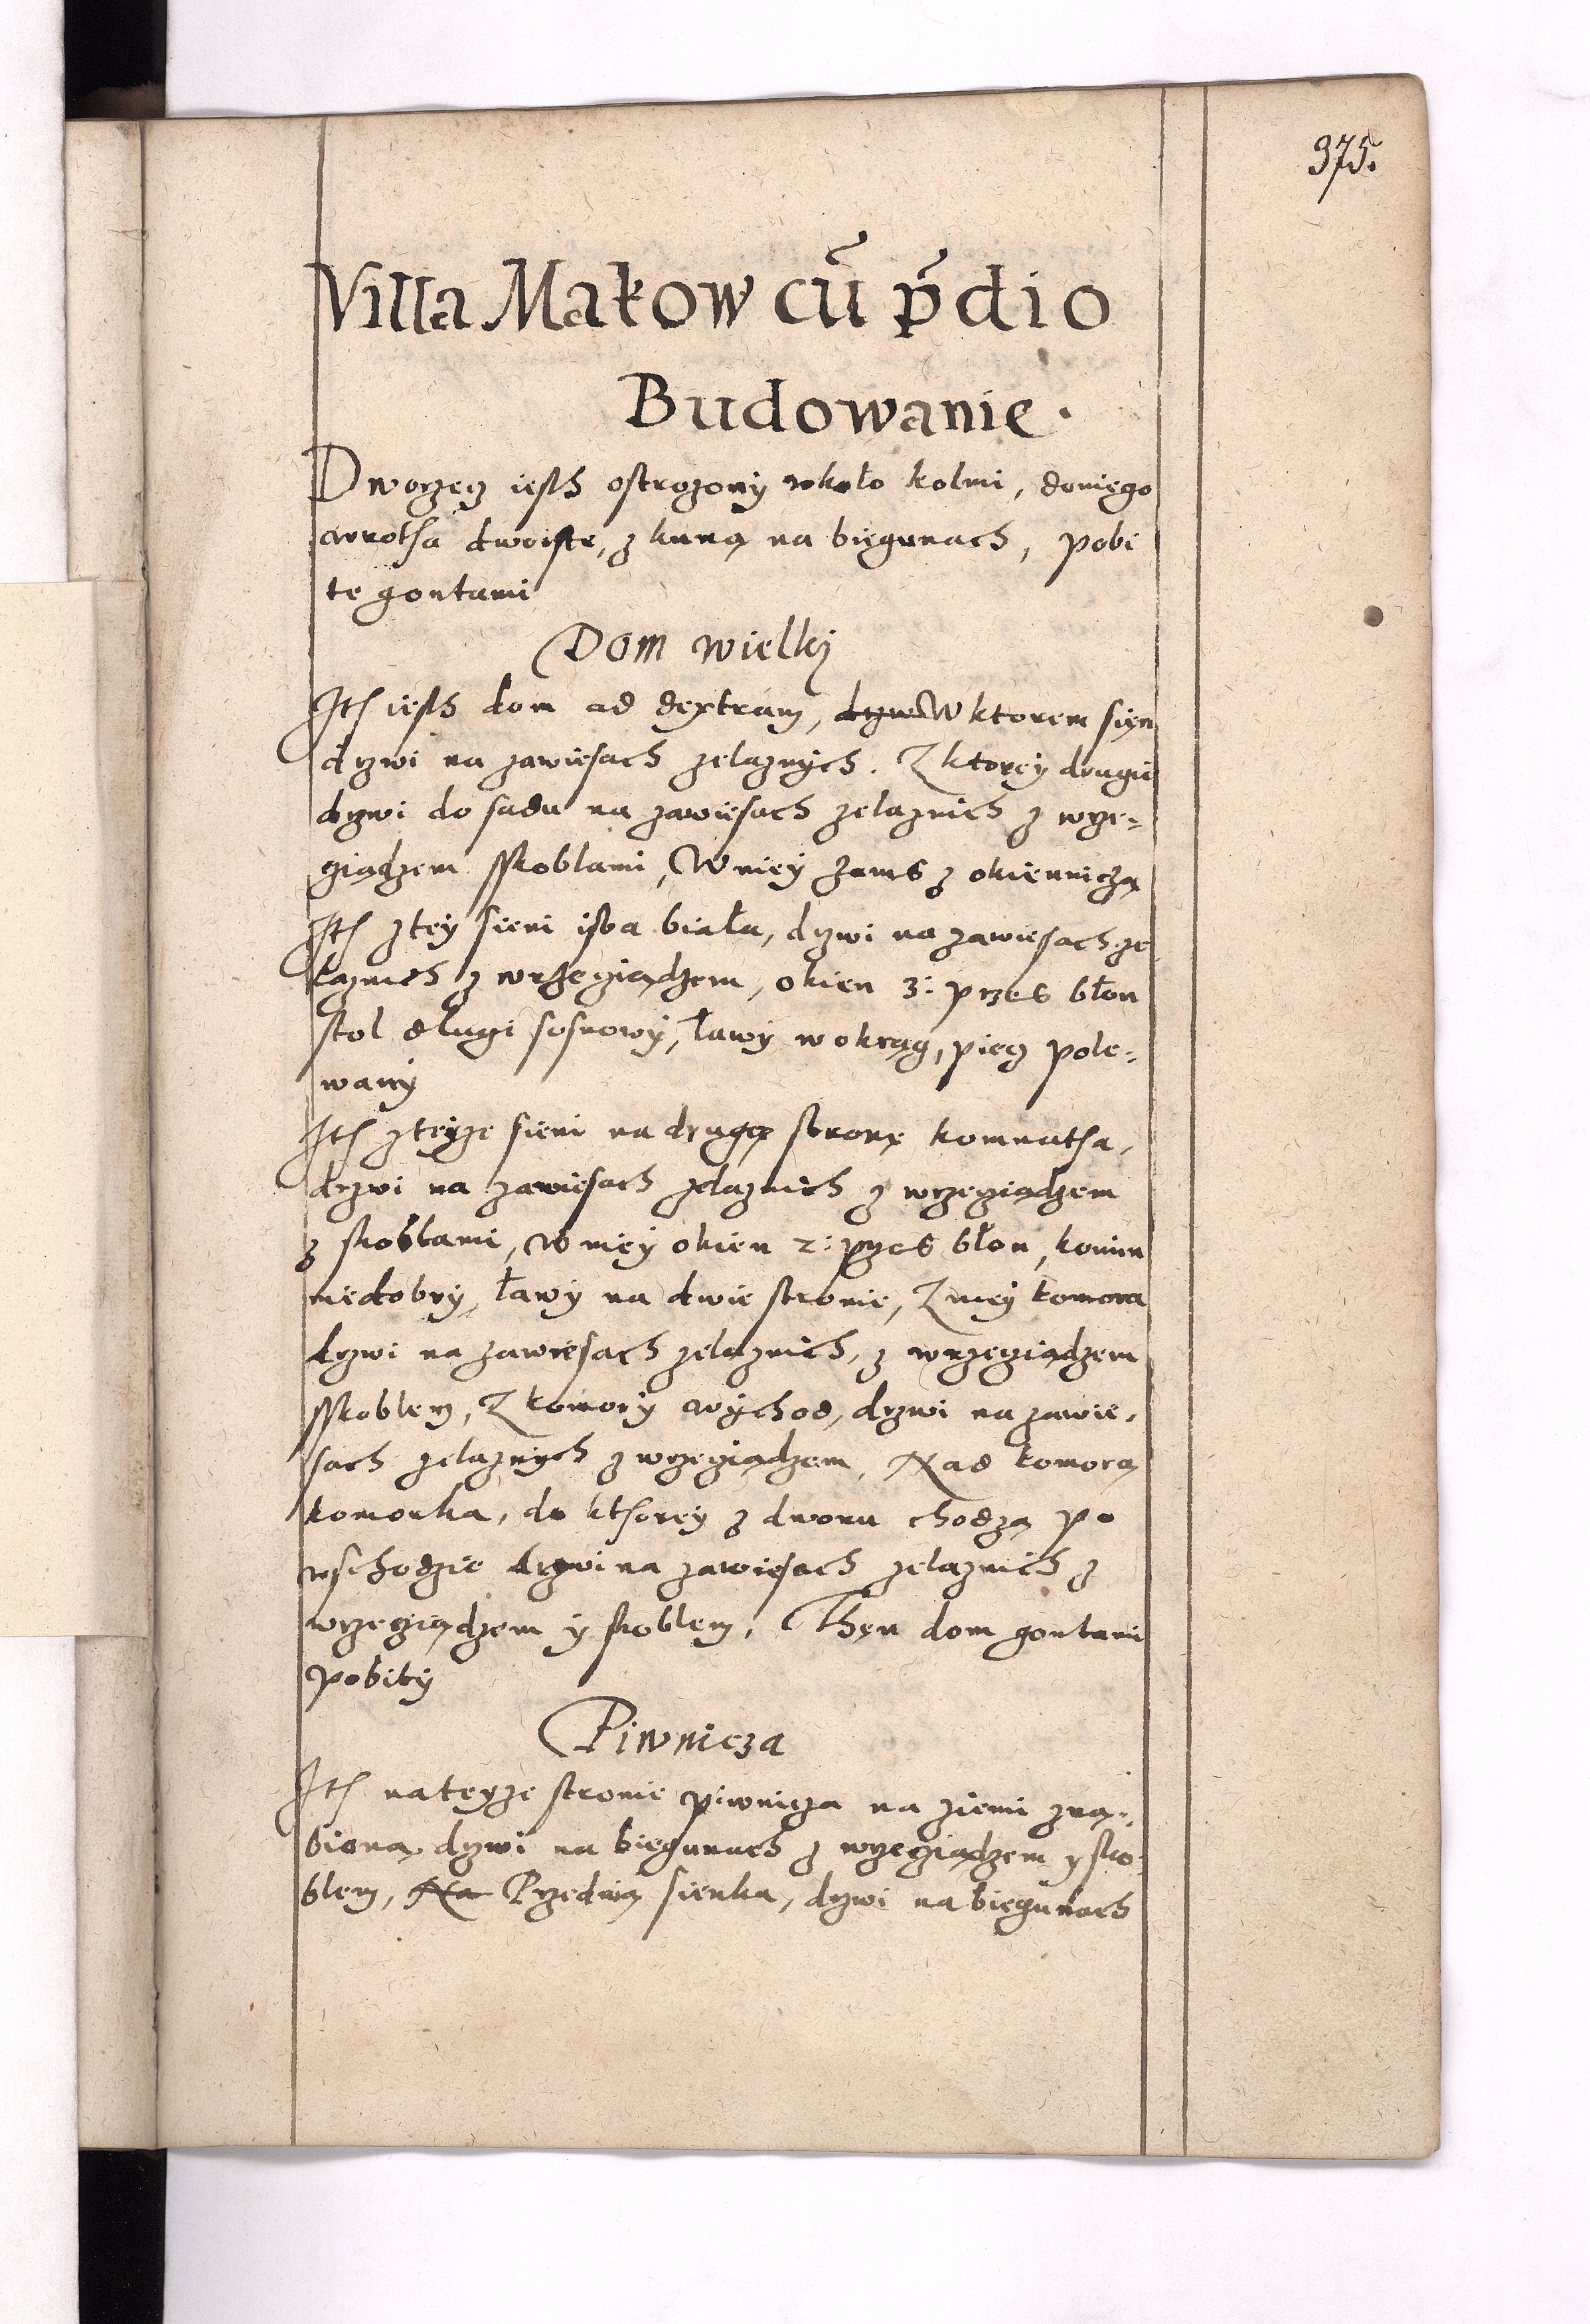 375.
Villa Makow cū p̄dio
Budowanie.
Dworzecz iesth ostrozony wkoło kolmi, doniego
wrotha dwoiste, z kuną na biegunach, pobi
te gontami
Dom wielki
Ith iesth dom ad dextram, W ktorem sien
drzwi na zawiesach zelaznych. Z ktorey drugie
drzwi do sadu na zawiesach zelaznich z wrze=
ciądzem sskoblami, W niey z okiennicza
Ith ztey sieni isba biała, drzwi na zawiesach ze
laznich z wrzeciądzem, okien 3: przes błon
stol dlugi sosnowy, ławy wokrąg, piecz pole=
wany
Ith zteyze sieni na drugą stronę komnatha,
drzwi na zawiesach zelaznich z wrzeciądzem
z skoblami, W niey okien 2: przes błon, komin
niedobry, ławy na dwie stronie, Z niey komora
drzwi na zawiesach zelaznich, z wrzeciądzem
sskoblem, Z komory wychod, drzwi na zawie,
sach zelaznych z wrzeciądzem, Nad komorą
komorka, do kthorey z dworu chodzą po
wschodzie drzwi na zawiesach zelaznich z
wrzeciądzem y skoblem, Then dom gontami
pobity
Piwnicza
Ith nateyze stronie piwnicza na ziemi zrą=
biona, drzwi na biegunach z wrzeciądzem y sko
blem, Na Przednią sienka, drzwi na biegunach